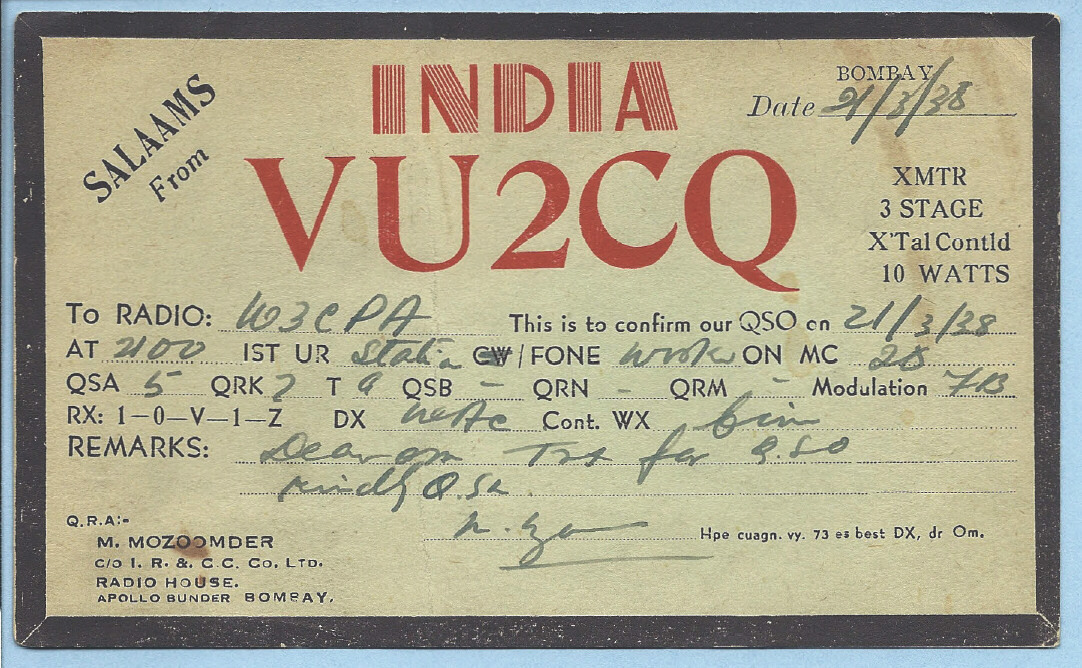 SALAAMS
From
INDIA
BOMBAY
Date 21/3/38
VU2CQ
XMTR
3 STAGE
X'Tal Contld
10 WATTS
To RADIO: W3CPA This is to confirm our QSO on 21/3/38
AT 2100 IST UR Station CW/FONE worked ON MC 28
QSA 5 QRK 7 T 9 QSB - QRN - QRM - Modulation
RX: 1-0-V-1-Z DX Cont. WX
REMARKS: Dear om Tnx for QSO
kindly QSL
Q.R.A:-
M. MOZOOMDER
C/O I. R. &. C.C. CO. LTD.
RADIO HOUSE.
APOLLO BUNDER BOMBAY.
Hpe cuagn. vy. 73 es best DX, dr Om.